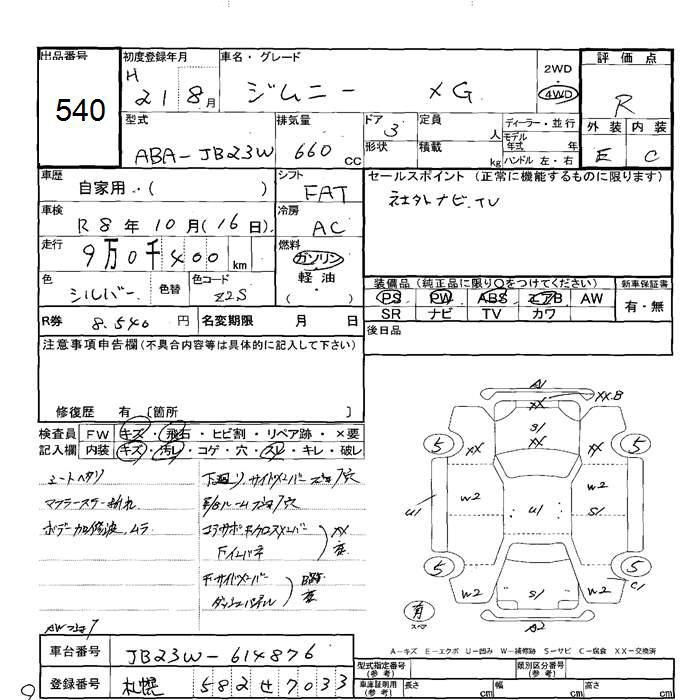 出品番号
540
初度登録年月
H 21 8月
車名・グレード
ジムニー XG
2WD
4WD
評価点
R
外装 内装
E C
型式
ABA-JB23W
排気量
660 cc
ドア 3
形状
定員 人
積載 kg
ディーラー・並行
モデル年式 年
ハンドル 左・右
車歴
自家用・( )
シフト
FAT
車検
R8年10月(16日)
冷房
AC
走行
9万0千400km
燃料
ガソリン
軽・油
( )
色
シルバー
色替
色コード
Z2S
R券 8.540円
名変期限 月 日
セールスポイント(正常に機能するものに限ります)
社外ナビ.TV
装備品(純正品に限り○をつけてください)
PS PW ABS エアB AW
SR ナビ TV カワ
新車保証書
有・無
後日品
注意事項申告欄(不具合内容等は具体的に記入して下さい)
修復歴 有〔箇所 〕
検査員記入欄
FW キズ・飛石・ヒビ割・リペア跡・×要
内装 キズ・汚レ・コゲ・穴・スレ・キレ・破レ
シートヘタリ
マフラーステー折れ
ボデー加修波、ムラ
下廻り、サイドメンバー サビ穴
コアサポ、Fクロスメンバー
Fインパネ
XX
F サイドメンバー
ダッシュパネル
A1
XX.B
XX
S1
XX
XX
5
5
W2
W2
U1
U1
S1
5
5
W2
S1
W2
C1
有
スペア
A2
A-キズ E-エクボ U-凹み W-補修跡 S-サビ C-腐食 XX-交換済
車台番号 JB23W-614876
登録番号 札幌 582せ7033
型式指定番号(参考)
類別区分番号(参考)
車庫証明用(参考) 長さ cm 幅 cm 高さ cm